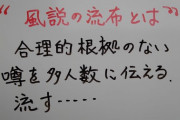 "風説の流布とは"
合理的根拠のない
噂を多人数に伝える.
流す……